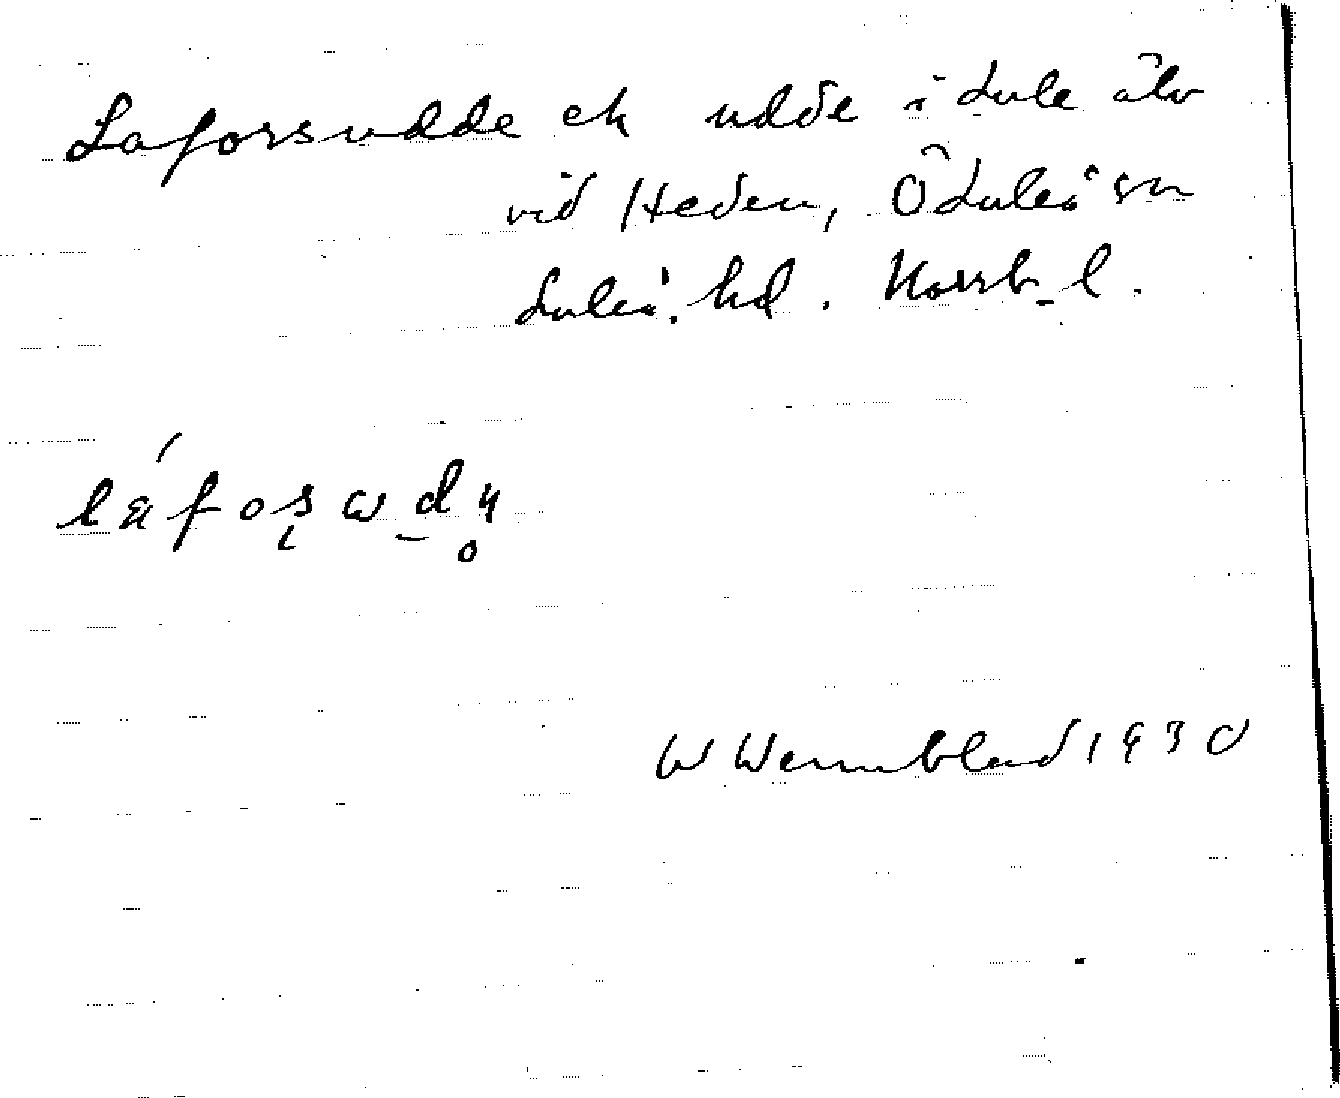 Laforsudde ch udde i Lule älv
vid Heden, Ö Luleå sn
Luleå hd. Norrb. l.
W Wennblad 1930